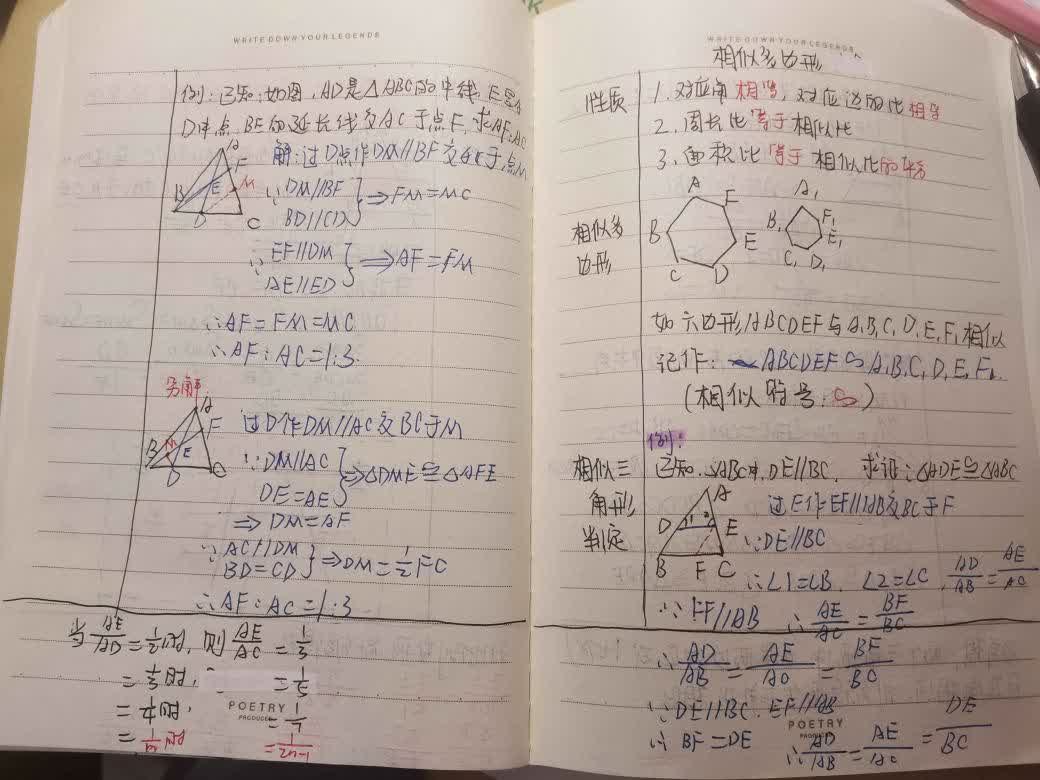 WRITE DOWN YOUR LEGENDS
例:已知:如图,AD是△ABC的中线,E是A
D中点,BE的延长线交AC于点F,求AF:AC
解:过D点作DM//BF交AC于点M
∵DM//BF
BD//CD
⇒FM=MC
∵EF//DM
AE//ED
⇒AF=FM
∴AF=FM=MC
∴AF:AC=1:3.
A
F
M
B
E
D
C
另解
过D作DM//AC交BC于M
∵DM//AC
DE=AE
⇒△DME≌△AFE
⇒DM=AF
∵AC//DM
BD=CD
⇒DM=½FC
∴AF:AC=1:3
A
F
B
M
E
D
C
当AE/AD=1/2时,则AE/AC=1/3
=1/3时, =1/5
=1/4时, =1/7
POETRY
PRODUCED
WRITE DOWN YOUR LEGENDS
相似多边形
性质
1.对应角相等,对应边的比相等
2.周长比等于相似比
3.面积比等于相似比的平方
相似多
边形
A
F
B
E
C
D
A₁
B₁
F₁
E₁
C₁ D₁
如六边形ABCDEF与A₁B₁C₁D₁E₁F₁相似
记作: ABCDEF∽A₁B₁C₁D₁E₁F₁
(相似符号:∽)
例:
相似三
角形
判定
已知△ABC中,DE//BC. 求证:△ADE≌△ABC
过E作EF//AB交BC于F
∵DE//BC
A
D 1 2 E
B F C
∴∠1=∠B. ∠2=∠C, AD/AB=AE/AC
∵EF//AB ∴AE/AC=BF/BC
∴AD/AB=AE/AC=BF/BC
∵DE//BC.EF//AB
∴BF=DE ∴AD/AB=AE/AC=DE/BC
POETRY
PRODUCED